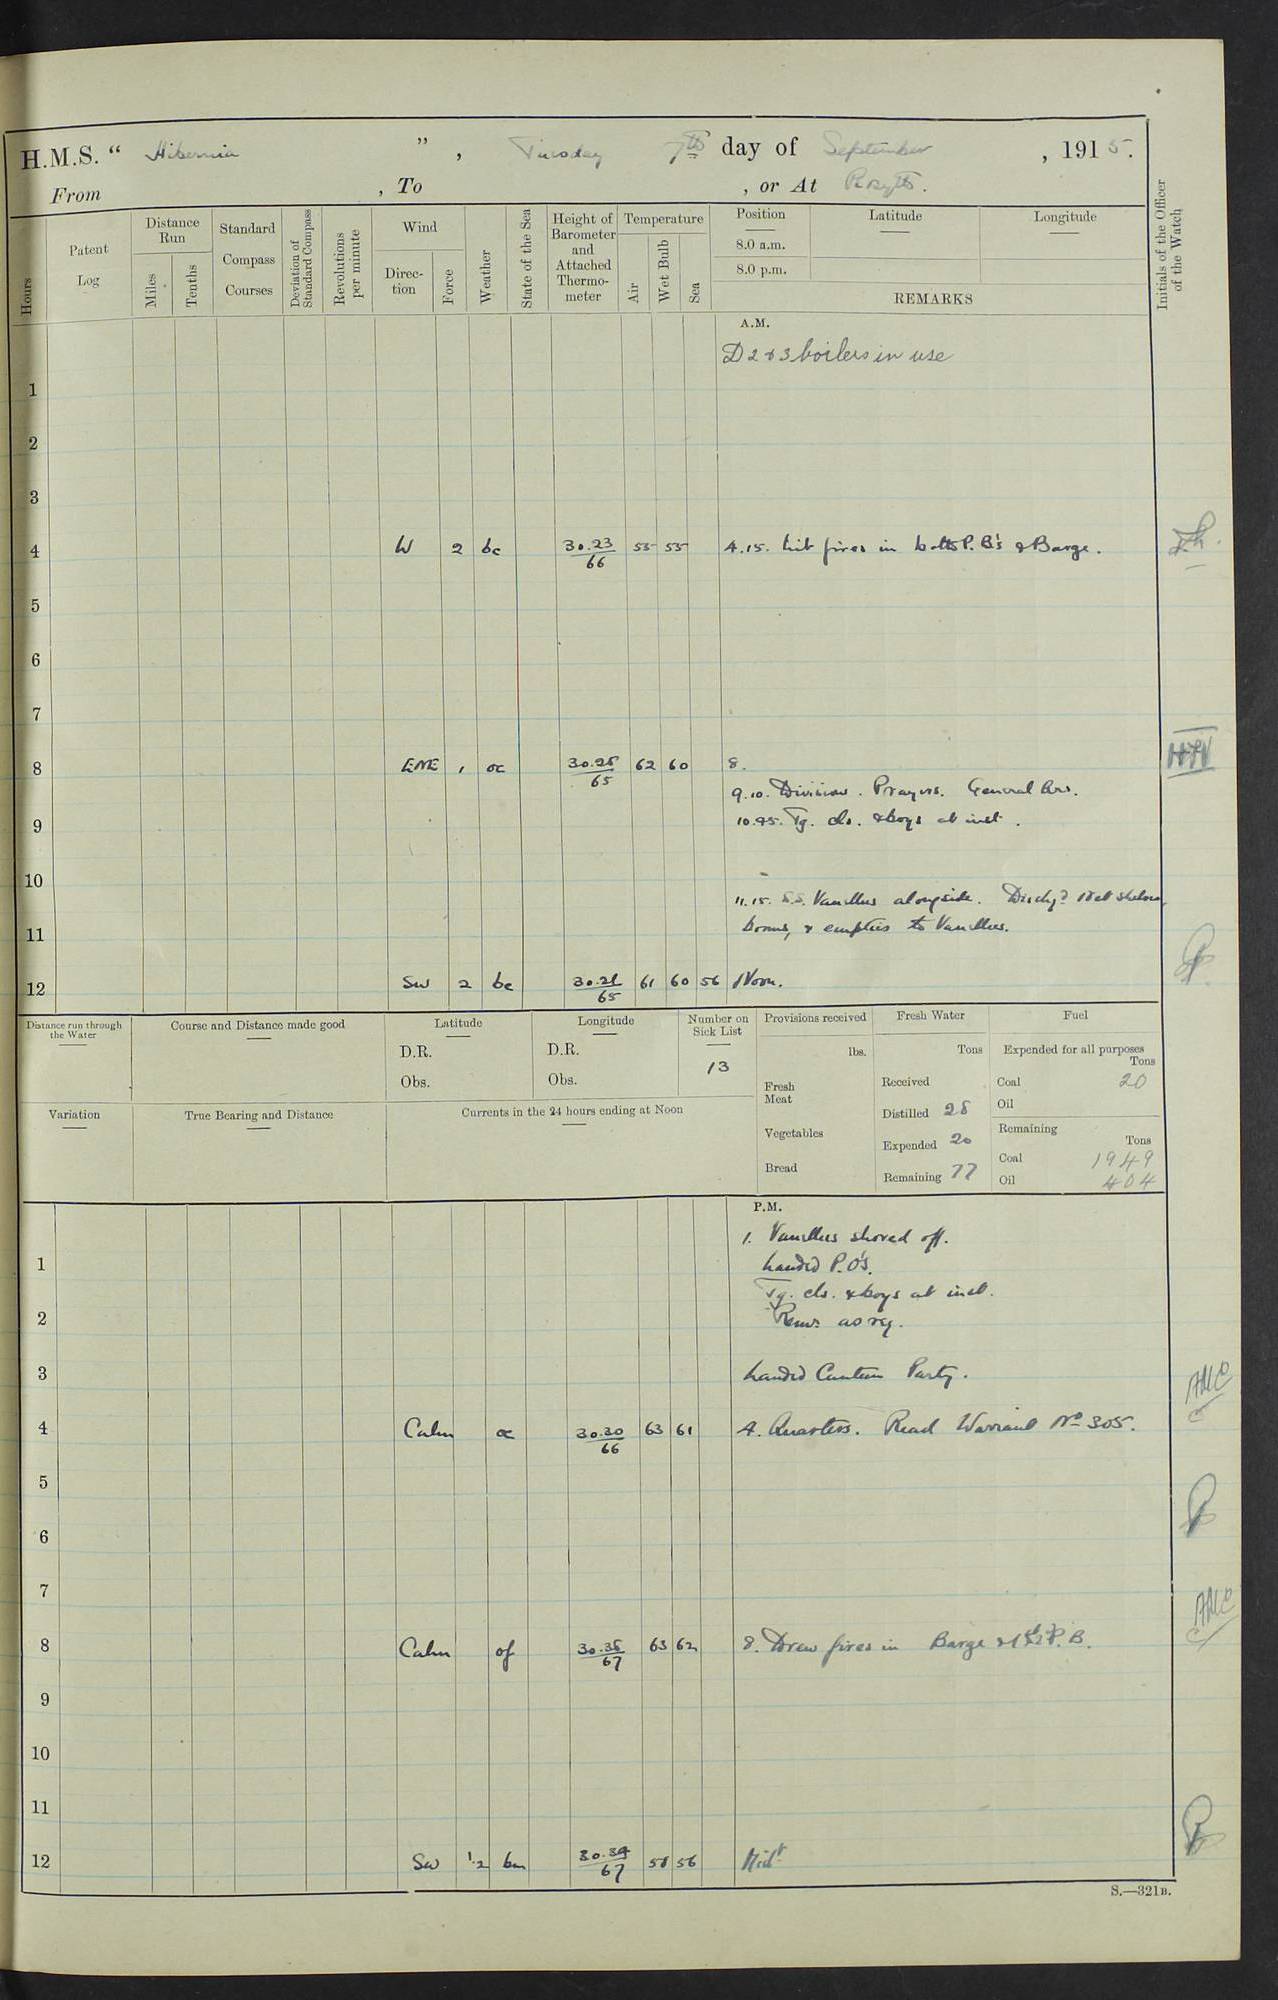 H.M.S. “ Hibernia ” , Tuesday 7th day of September , 1915.
From , To , or At Rosyth.
Hours
Patent Log
Distance Run
Miles
Tenths
Standard Compass Courses
Deviation of Standard Compass
Revolutions per minute
Wind
Direc- tion
Force
Weather
State of the Sea
Height of Barometer and Attached Thermo- meter
Temperature
Air
Wet Bulb
Sea
Position
8.0 a.m.
8.0 p.m.
Latitude
Longitude
REMARKS
Initials of the Officer of the Watch
A.M.
D 2 & 3 boilers in use
1
2
3
4 W 2 bc 30.23/66 55 55 4.15. Lit fires in both P.B's & Barge.
5
6
7
8 ENE 1 oc 30.28/65 62 60 8.
9.10. Divisions. Prayers. General
9 10.45. Tg. cls. & boys at inst.
10
11.15. S.S. Vanellus alongside. Dischd
11 booms, & empties to Vanellus.
12 SW 2 bc 65 61 60 56 Noon.
Distance run through the Water
Course and Distance made good
Latitude
D.R.
Obs.
Longitude
D.R.
Obs.
Number on Sick List
13
Provisions received
lbs.
Fresh Meat
Vegetables
Bread
Fresh Water
Tons
Received
Distilled 28
Expended 20
Remaining 77
Fuel
Expended for all purposes
Tons
Coal 20
Oil
Remaining
Tons
Coal 1949
Oil 404
Variation
True Bearing and Distance
Currents in the 24 hours ending at Noon
P.M.
1. Vanellus shoved off.
1 Landed P.O's.
Tg. cls. & boys at inst.
2 Remr as req.
3 Landed Canteen Party.
4 Calm oc 30.30/66 63 61 4. Quarters. Read Warrant No 305.
5
6
7
8 Calm of 30.38/67 63 62 8. Drew fires in Barge & P.B.
9
10
11
12 SW 1.2 bm 30.39/67 58 56 Midt
S.—321B.